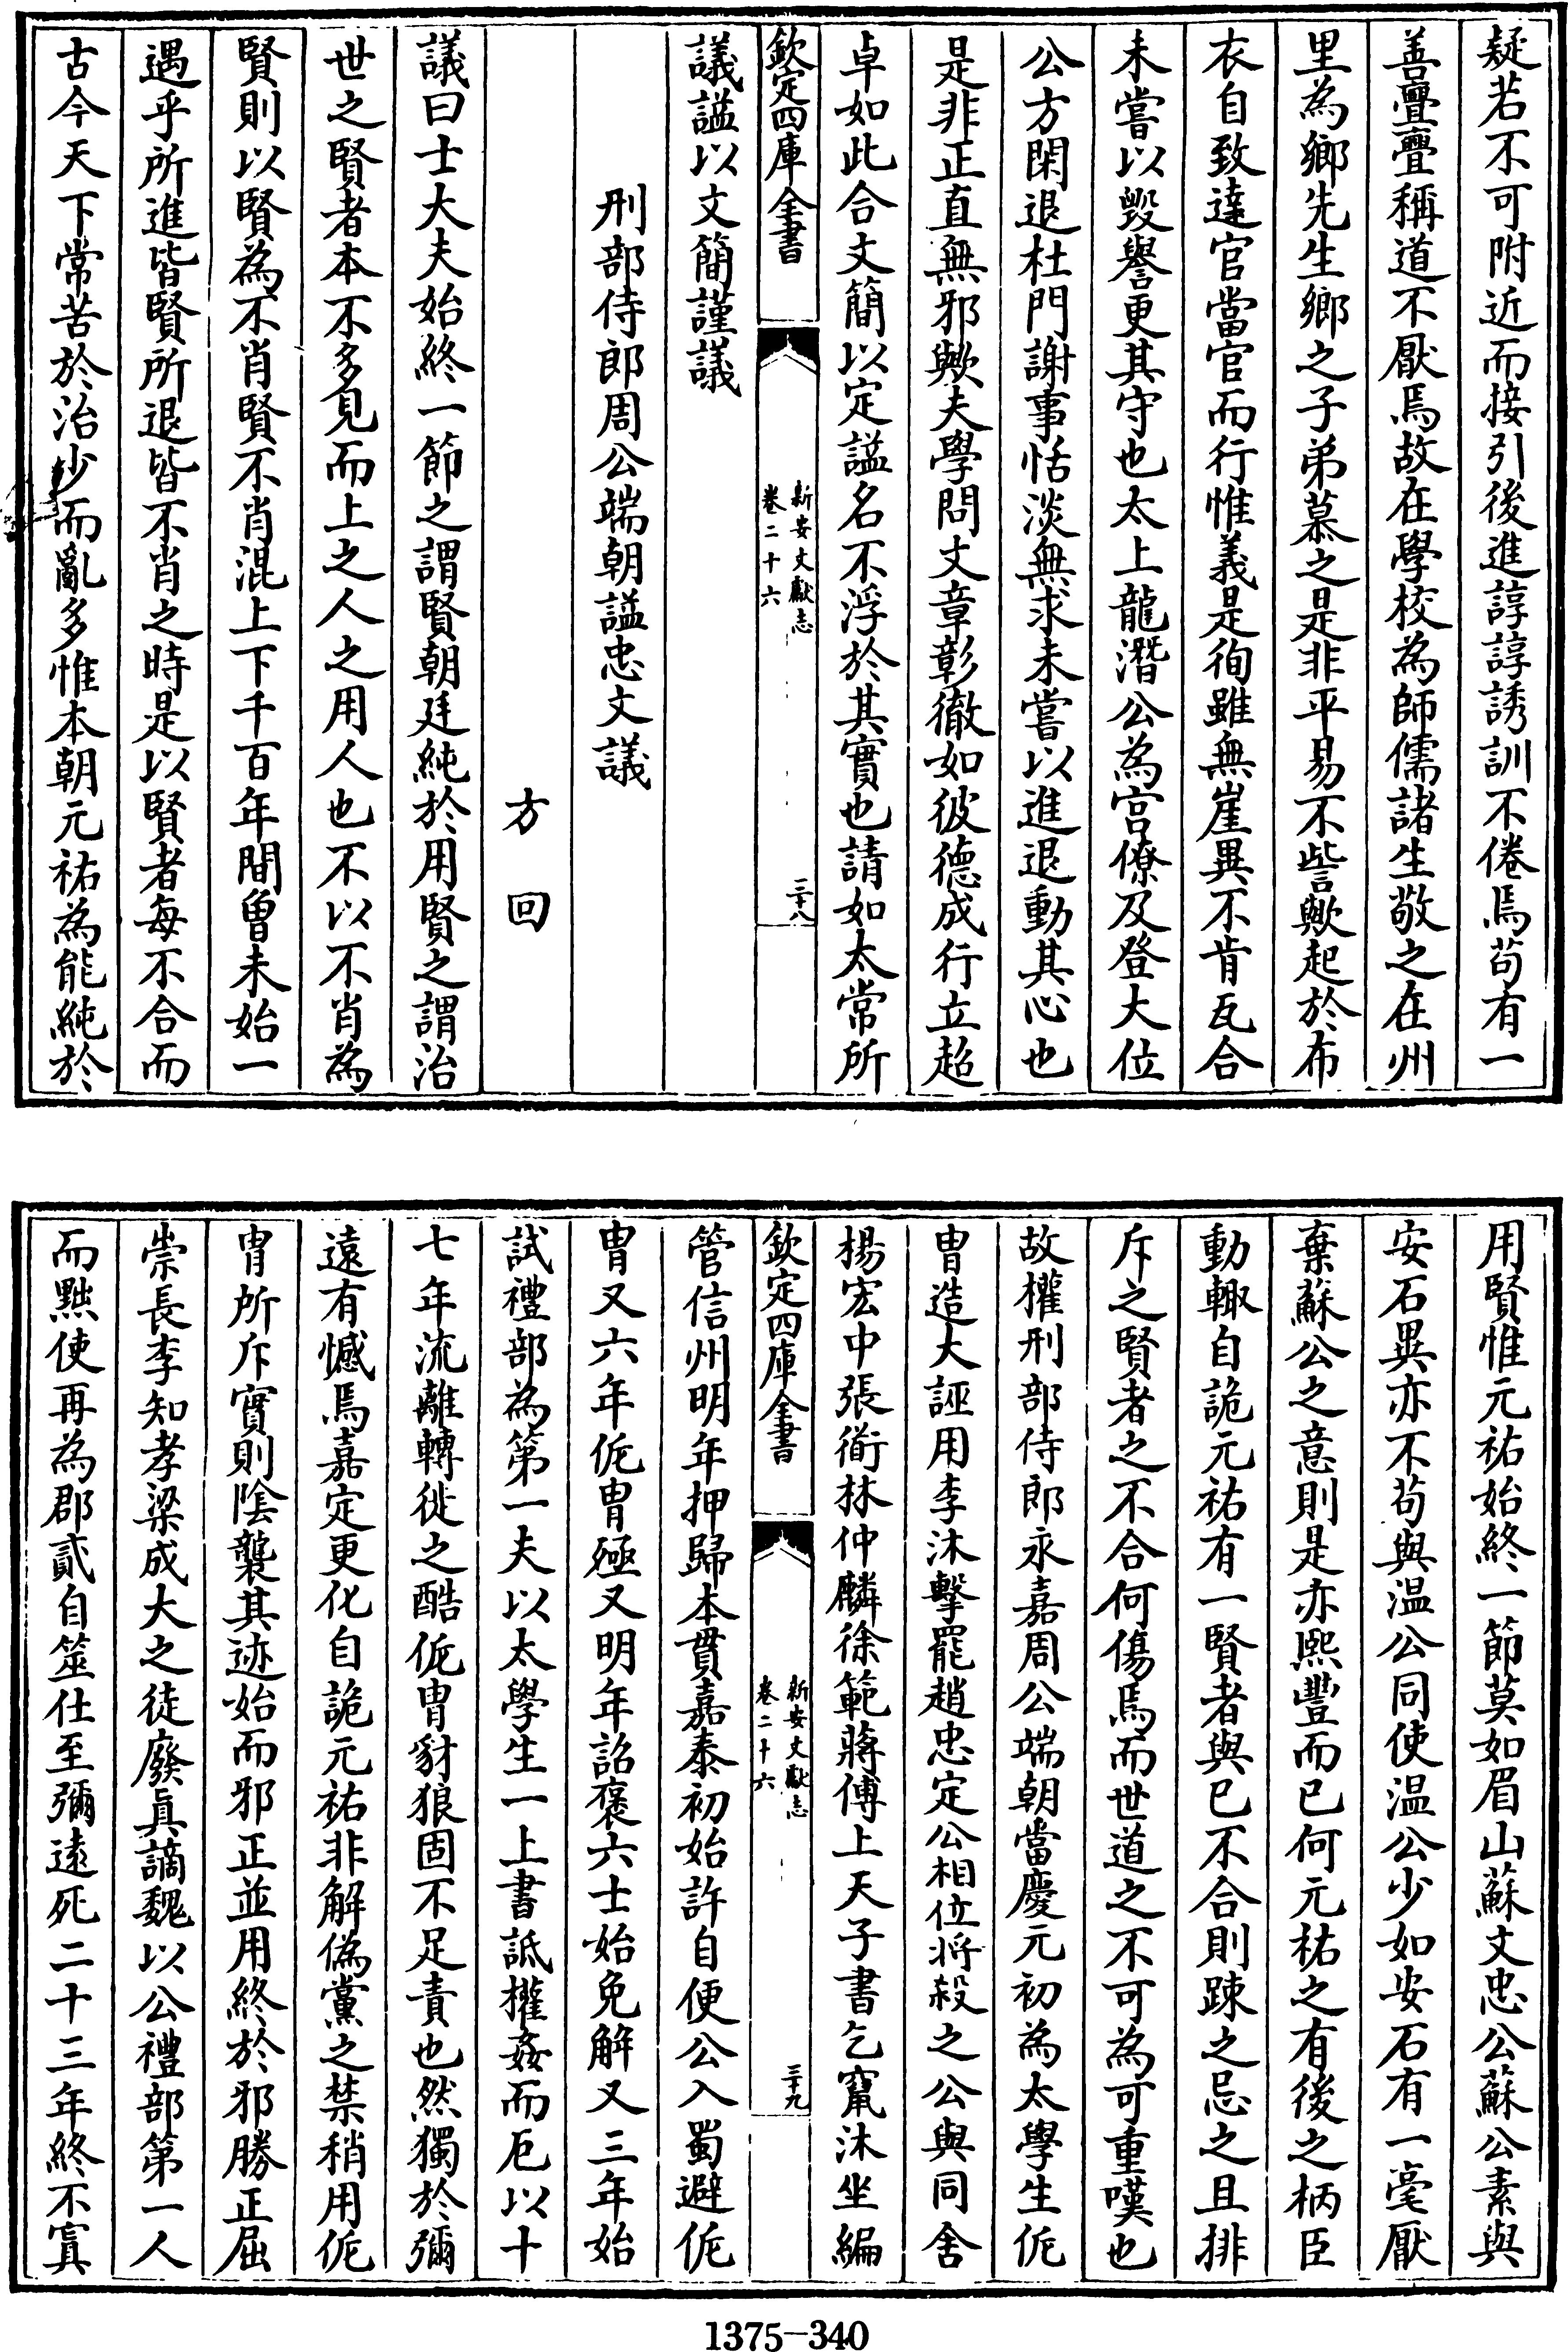 疑若不可附近而接引後進諄諄誘訓不倦焉茍有一
善亹亹稱道不厭焉故在學校為師儒諸生敬之在州
里為鄉先生鄉之子弟慕之是非平易不訾歟起於布
衣自致達官當官而行惟義是徇雖無崖異不肯瓦合
未嘗以毀譽更其守也太上龍潛公為宫僚及登大位
公方閑退杜門謝事恬淡無求未嘗以進退動其心也
是非正直無邪歟夫學問文章彰徹如彼德成行立超
卓如此合文簡以定謚名不浮於其實也請如太常所
欽定四庫全書
新安文獻志
卷二十六
三十八
議謚以文簡謹議
刑部侍郎周公端朝謚忠文議
方回
議曰士大夫始終一節之謂賢朝廷純於用賢之謂治
世之賢者本不多見而上之人之用人也不以不肖為
賢則以賢為不肖賢不肖混上下千百年間曽未始一
遇乎所進皆賢所退皆不肖之時是以賢者每不合而
古今天下常苦於治少而亂多惟本朝元祐為能純於
用賢惟元祐始終一節莫如眉山蘇文忠公蘇公素與
安石異亦不茍與温公同使温公少如安石有一毫厭
棄蘇公之意則是亦熙豐而已何元祐之有後之柄臣
動輙自詭元祐有一賢者與已不合則踈之忌之且排
斥之賢者之不合何傷焉而世道之不可為可重嘆也
故權刑部侍郎永嘉周公端朝當慶元初為太學生侂
胄造大誣用李沐擊罷趙忠定公相位將殺之公與同舍
楊宏中張衜林仲麟徐範蔣傅上天子書乞竄沐坐編
欽定四庫全書
新安文獻志
卷二十六
三十九
管信州明年押歸本貫嘉泰初始許自便公入蜀避侂
胄又六年侂胄殛又明年詔褒六士始免解又三年始
試禮部為第一夫以太學生一上書詆權姦而厄以十
七年流離轉徙之酷侂胄豺狼固不足責也然獨於彌
遠有憾焉嘉定更化自詭元祐非解偽黨之禁稍用侂
胄所斥實則陰襲其迹始而邪正並用終於邪勝正屈
崇長李知孝梁成大之徒廢真謫魏以公禮部第一人
而黜使再為郡貳自筮仕至彌遠死二十三年終不寘
1375-340